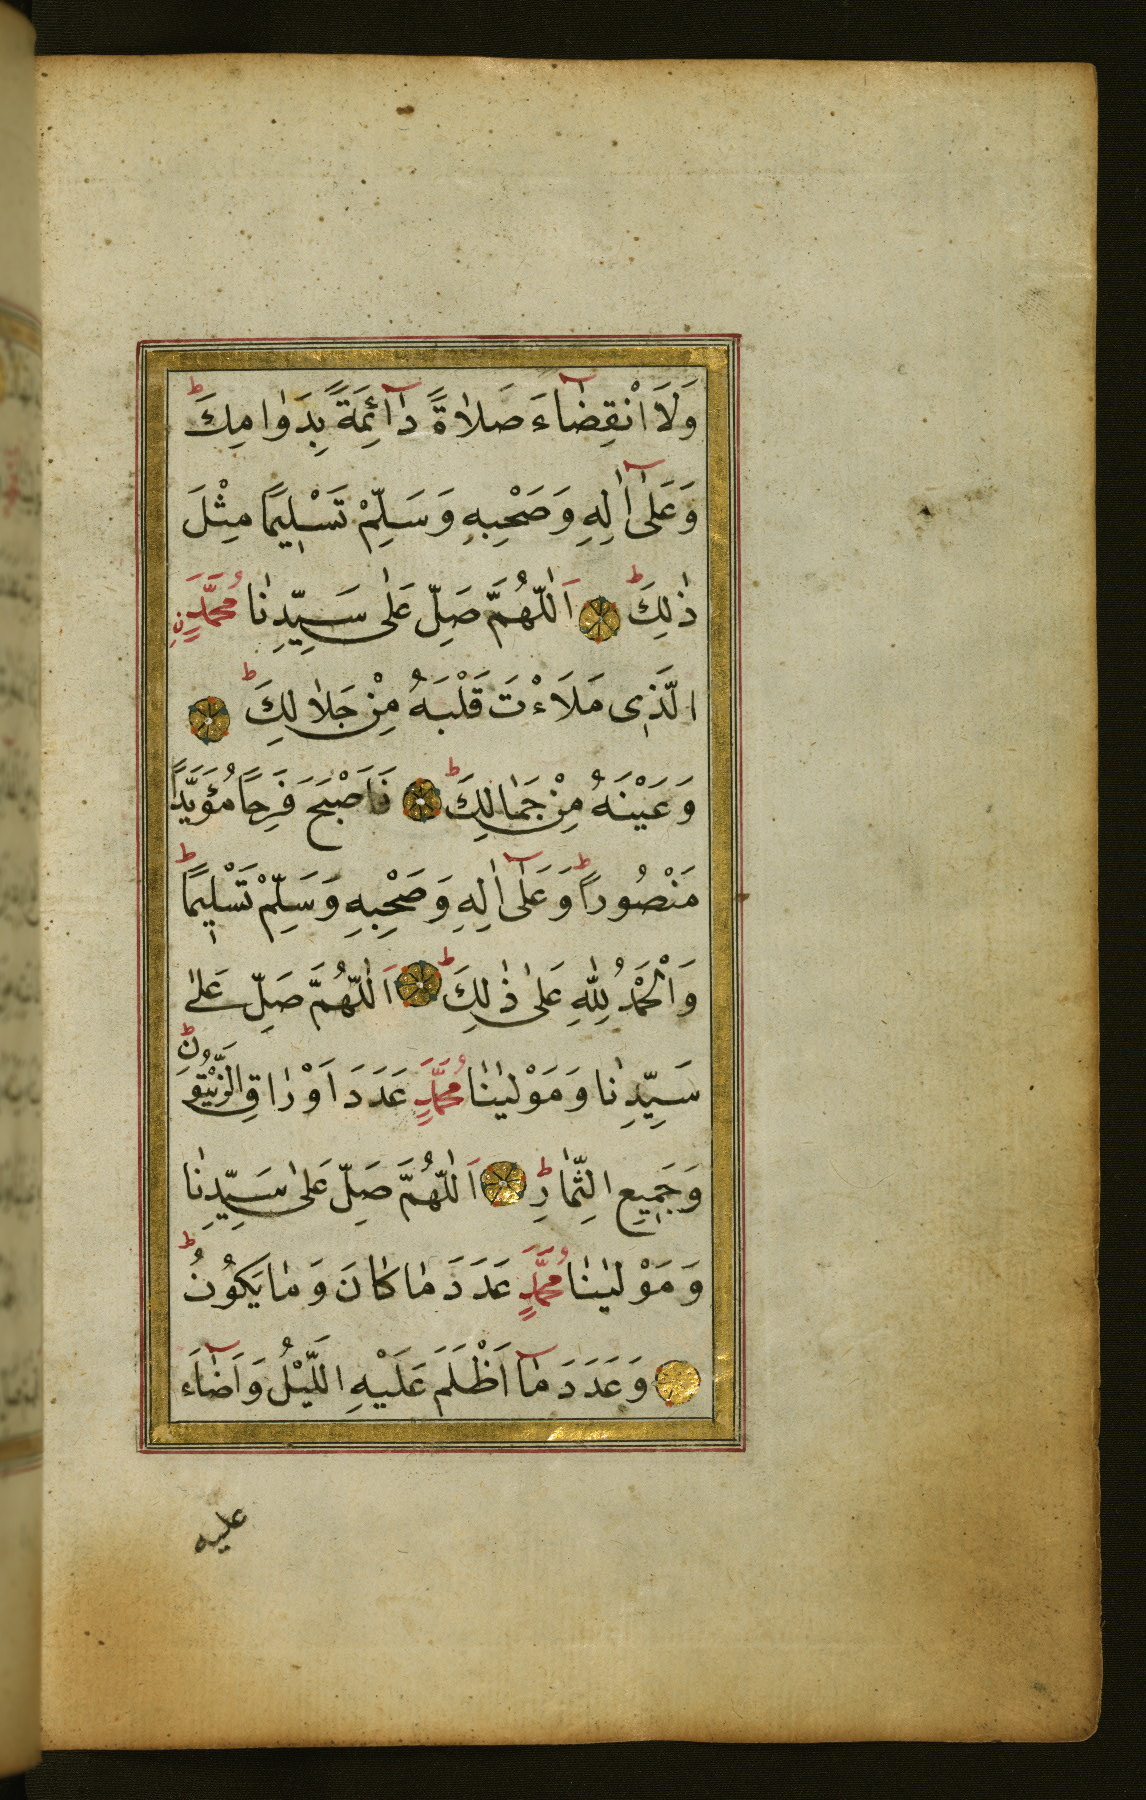 وَلَا انْقِضَآءَ صَلَاةً دَآئِمَةً بِدَوَامِكَ ط
وَعَلٰٓى اٰلِهٖ وَصَحْبِهٖ وَسَلِّمْ تَسْلِيمًا مِثْلَ
ذٰلِكَ ط اَللّٰهُمَّ صَلِّ عَلٰى سَيِّدِنَا مُحَمَّدٍ نِ
الَّذِى مَلَاْءْتَ قَلْبَهُ مِنْ جَلَالِكَ ط
وَعَيْنَهُ مِنْ جَمَالِكَ ط فَاَصْبَحَ فَرِحًا مُؤَيَّدًا
مَنْصُورًا ط وَعَلٰٓى اٰلِهٖ وَصَحْبِهٖ وَسَلِّمْ تَسْلِيمًا ط
وَاَلْحَمْدُ لِلّٰهِ عَلٰى ذٰلِكَ ط اَللّٰهُمَّ صَلِّ عَلٰى
سَيِّدِنَا وَمَوْلٰينَا مُحَمَّدٍ عَدَدَ اَوْرَاقِ الزَّيْتُونِ ط
وَجَمِيعِ الثِّمَارِ ط اَللّٰهُمَّ صَلِّ عَلٰى سَيِّدِنَا
وَمَوْلٰينَا مُحَمَّدٍ عَدَدَ مَا كَانَ وَمَا يَكُونُ ط
وَعَدَدَ مَآ اَظْلَمَ عَلَيْهِ الَّيْلُ وَاَضَآءَ
عليه